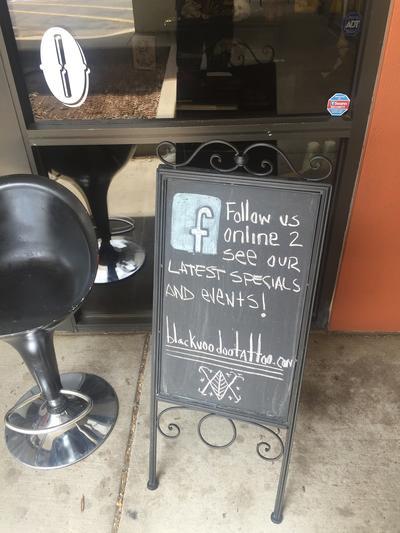 ADT
f
Follow us
online 2
see our
LATEST SPECIALS
AND eveNTS!
blackvoodootattoo.com